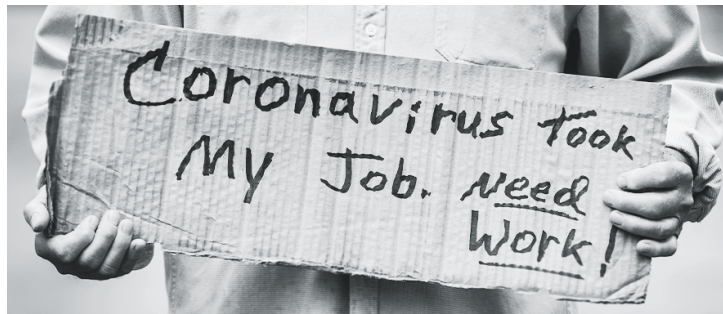 Coronavirus Took
My Job. Need
Work!